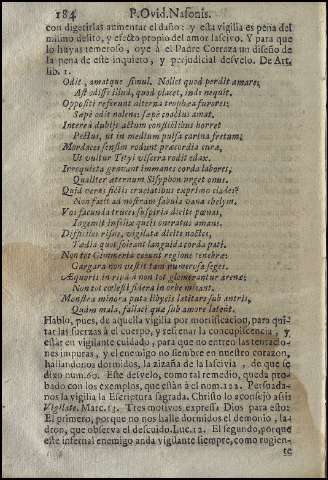 184 P. Ovid. Nasonis.
con digerirlas aumentar el daño: y esta vigilia es pena del
mismo delito, y efecto propio del amor lascivo. Y para que
lo huyas temeroso, oye à el Padre Corraza un diseño de
la pena de este inquieto, y perjudicial desvelo. De Art.
lib. 1.
Odit, amatque simul. Nollet quod perdit amare;
Ast odisse illud, quod placet, inde nequit.
Oppositi referunt alterna trophæa furores;
Sæpè odit nolens: sæpè coactus amat.
Interea dubijs actum conflictibus horret
Pectus, ut in medium pulsa carina fretum;
Mordaces sensim rodunt præcordia curæ,
Ut vultur Tityi viscera rodit edax.
Irrequieta gravant immanes corda labores;
Qualiter æternum Sisyphon urget onus.
Quid veris fictis cruciatibus exprimo clades?
Non facit ad nostram fabula vana chelym.
Vos facunda truces suspiria dicite pœnas,
Ingemit infelix queis oneratus amans.
Difficiles risus, vigilatæ dicite noctes,
Tædia quot soleant languida corda pati.
Non tot Cimmeria cœunt regione tenebræ:
Gargara non vestit tam numerosa seges.
Æquoris in rixâ non tot glomerantur arenæ;
Non tot cœlesti sidera in orbe micant.
Monstra minora puta libycis latitare sub antris,
Quàm mala, fallaci quæ sub amore latent.
Hablo, pues, de aquella vigilia por mortificacion, para quitar
las fuerzas à el cuerpo, y refrenar la concupiscencia, y
estàr en vigilante cuidado, para que no entren las tentaciones
impuras, y el enemigo no siembre en nuestro corazon,
hallandonos dormidos, la zizaña de la lascivia, de que se
dixo num. 60. Este desvelo, como tal remedio, queda probado
con los exemplos, que están à el nom. 122. Persuadanos
la vigilia la Escriptura sagrada. Christo lo aconsejó assi:
Vigilate. Marc. 13. Tres motivos expressa Dios para esto:
El primero, porque no nos halle dormidos el demonio, ladron,
que observa el descuido. Luc. 12. El segundo, porque
este infernal enemigo anda vigilante siempre, como rugien-
te